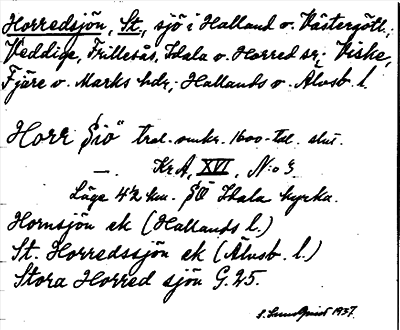 Horredsjön, St., sjö i Halland o. Västergötl.;
Veddige, Frillesås, Idala o. Horred sr; Viske,
Fjäre o. Marks hdr; Hallands o. Älvsb. l.
Horr Siö" trol. omkr. 1600-tal. slut.
—. Kr A, XVI, N:o 3.
Läge 4½ km. SO Idala kyrka.
Hornsjön ek (Hallands l.)
St. Horredssjön ek (Älvsb. l.)
Stora Horred sjön G. 25.
1937.